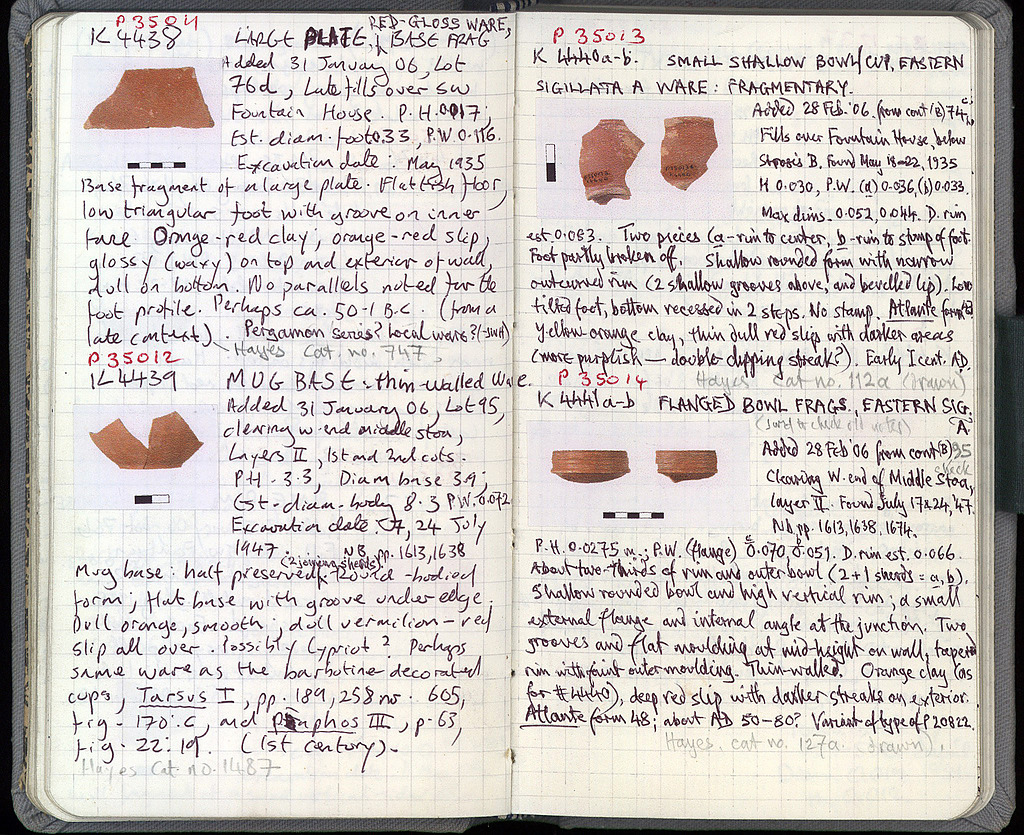 P 35011
K 4438 LARGE PLATE, RED-GLOSS WARE, BASE FRAG
Added 31 January 06, Lot
76d, Late fills over SW
Fountain House. P.H. 0.017;
Est. diam. foot 0.33, P.W. 0.116.
Excavation date: May 1935
Base fragment of a large plate. Flattish floor,
low triangular foot with groove on inner
face. Orange-red clay; orange-red slip,
glossy (waxy) on top and exterior of wall,
dull on bottom. No parallels noted for the
foot profile. Perhaps ca. 50-1 B.C. (from a
late context). Pergamon series? Local ware?
Hayes Cat. no. 747.
P 35012
K 4439 MUG BASE - thin-walled Ware.
Added 31 January 06, Lot 95,
clearing w. end middle stoa,
Layers II, 1st and 2nd cuts.
P.H. 3.3, Diam base 3.9;
Est. diam. body 8.3 P.W. 0.072
Excavation date: 17, 24 July
1947. NB pp. 1613, 1638
Mug base: half preserved (2 joining sherds). Round-bodied
form; flat base with groove under edge.
Dull orange, smooth; dull vermilion-red
slip all over. Possibly Cypriot? Perhaps
same ware as the barbotine-decorated
cups, Tarsus I, pp. 189, 258 no. 605,
fig. 170.C, and Paphos III, p. 63,
fig. 22:19. (1st century).
Hayes Cat. no. 1487
P 35013
K 4440a-b. SMALL SHALLOW BOWL/CUP, EASTERN
SIGILLATA A WARE: FRAGMENTARY.
Added 28 Feb. '06 from cont (B) 74,
Fills over Fountain House, below
Strosis B. Found May 18-22, 1935
H 0.030, P.W. (a) 0.036, (b) 0.033.
Max dims. 0.052, 0.044. D. rim
est. 0.083. Two pieces (a - rim to center, b - rim to stump of foot.
Foot partly broken off. Shallow rounded form with narrow
outcurved rim (2 shallow grooves above, and bevelled lip). Low
tilted foot, bottom recessed in 2 steps. No stamp. Atlante form
Yellow orange clay, thin dull red slip with darker areas
(more purplish — double-dipping streak?). Early I cent. AD.
Hayes cat no. 112a (drawn)
P 35014
K 4441a-b FLANGED BOWL FRAGS., EASTERN SIG. A.
Added 28 Feb '06 from cont (B) 95
check
Clearing W. end of Middle Stoa,
layer II. Found July 17 & 24, '47.
NB pp. 1613, 1638, 1674.
P.H. 0.0275 m.; P.W. (flange) a 0.070, b 0.051. D. rim est. 0.066.
About two-thirds of rim and outer bowl (2+1 sherds = a, b).
Shallow rounded bowl and high vertical rim; a small
external flange and internal angle at the junction. Two
grooves and flat moulding at mid-height on wall, tapered
rim with faint outer moulding. Thin-walled. Orange clay (as
for #4440), deep red slip with darker streaks on exterior.
Atlante form 48; about AD 50-80? Variant of type of P 20822.
Hayes, cat no. 127a. (drawn).